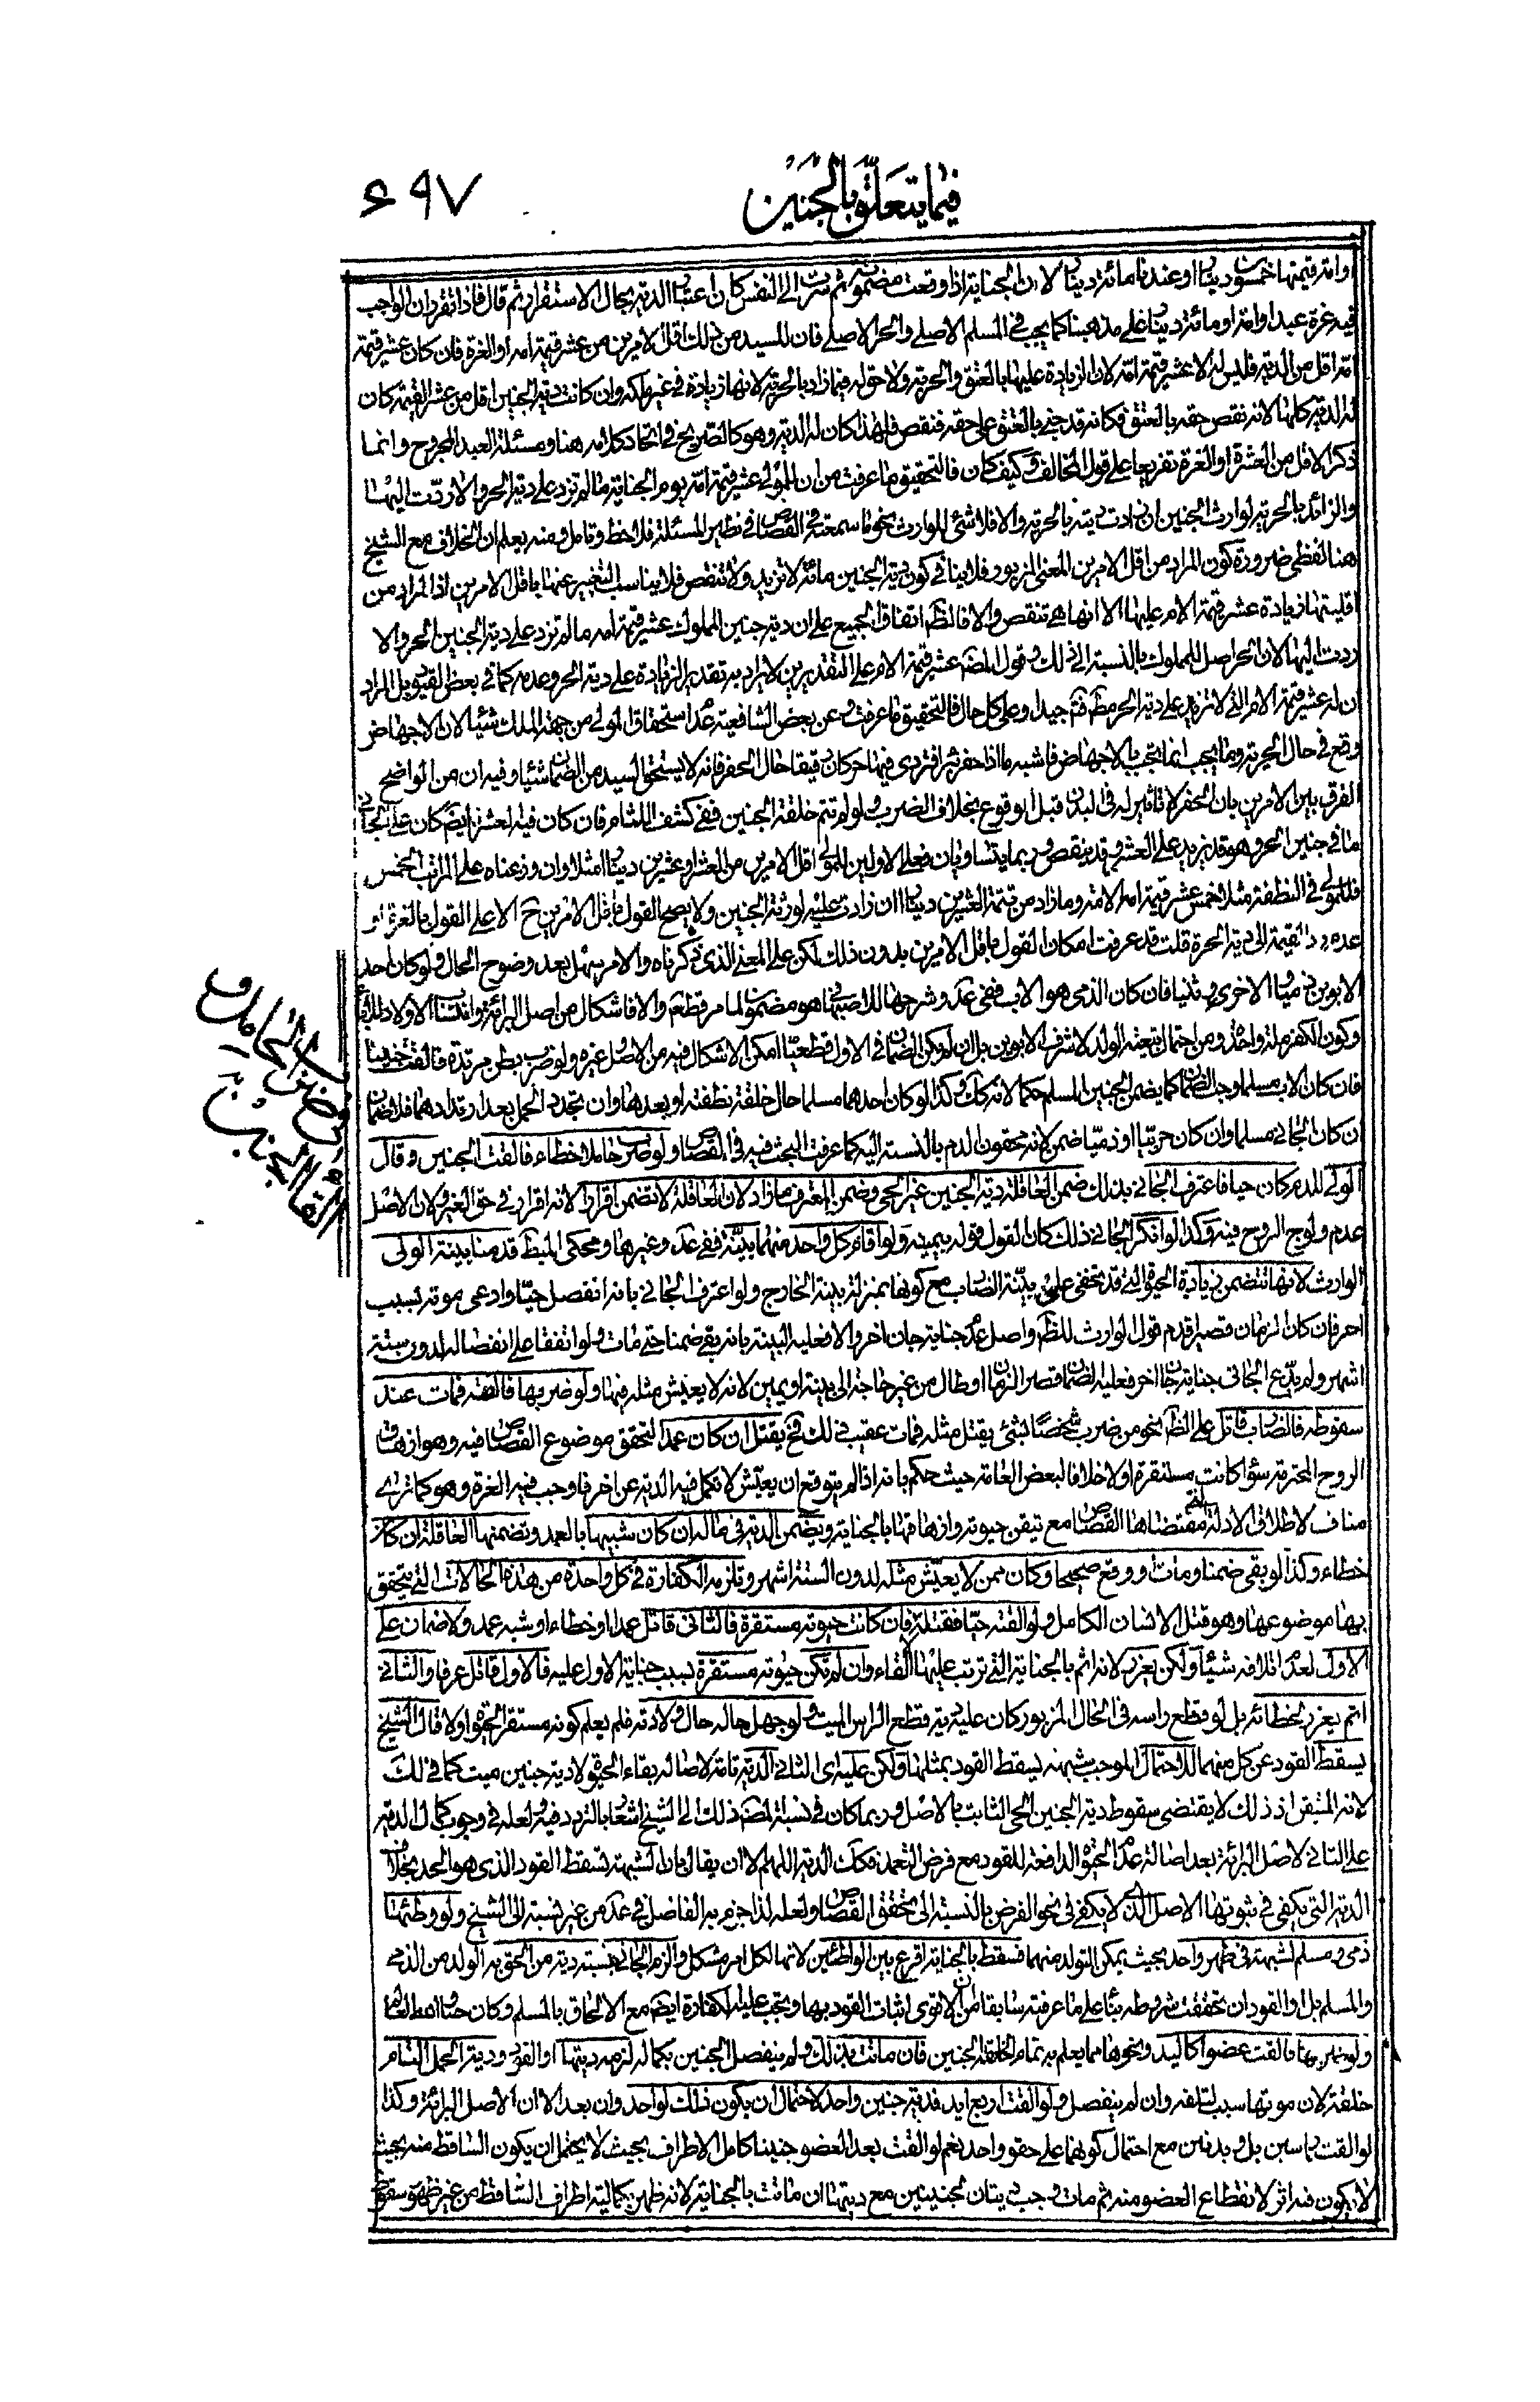 فيما يتعلق بالجنين
٦٩٧
او امة قيمتها خمسون دينارا وعندنا مائة دينار لان الجناية اذا وقعت مضمونة ثم سرت الى النفس كان اعتبار الدية بحال الاستقرار ثم قال فاذا تقرر ان الواجب
فيه غرة عبد او امة او مائة دينار على مذهبنا كما يجب في المسلم الاصلي والحر الاصلي فان للسيد من ذلك اقل الامرين من عشر قيمة امه او الغرة فان كان عشر قيمة
امه اقل من الدية فليس له الا عشر قيمة امه لان الزيادة عليها بالعتق والحرية ولا حق له فيما زاد بالحرية لانها زيادة في غير ملكه وان كانت دية الجنين اقل من عشر القيمة كان
له الدية كلها لانه نقص حقه بالعتق فكانه قد جنى بالعتق على حقه فنقص فلهذا كان له الدية وهو كالصريح في اتحاد كلامه هنا ومسئلة العبد المجروح وانما
ذكر الاقل من العشر او الغرة تفريعا على قول المخالف وكيف كان فالتحقيق ما عرفت من ان للمولى عشر قيمة امه يوم الجناية ما لم تزد على دية الحر والا ردت اليها
والزائد بالحرية لوارث الجنين ان زادت ديته بالحرية والا فلا شئ للوارث نحو ما سمعته في القصاص في نظير المسئلة فلاحظ وتامل ومنه يعلم ان الخلاف مع الشيخ
هنا لفظي ضرورة كون المراد من اقل الامرين المعنى المزبور فلا ينافي كون دية الجنين مائة لا تزيد ولا تنقص فلا يناسب التعبير عنها باقل الامرين اذ المراد من
اقليتها زيادة عشر قيمة الام عليها لا انها هي تنقص والا فالظ اتفاق الجميع على ان دية جنين المملوك عشر قيمة امه ما لم تزد على دية الجنين الحر والا
ردت اليها لان الحر اصل للمملوك بالنسبة الى ذلك وقول المص عشر قيمة الام على التقديرين لا يراد به تقدير الزيادة على دية الحر وعدمه كما في بعض القيود بل المراد
ان له عشر قيمة الام التي لا تزيد على دية الحر مط فتم جيدا وعلى كل حال فالتحقيق ما عرفت وعن بعض الشافعية عدم استحقاق المولى من جهة الملك شيئا لان الاجهاض
وقع في حال الحرية وما يجب انما يجب بالاجهاض فاشبه ما اذا حفر بئرا فتردى فيها حر كان رقيقا حال الحفر فانه لا يستحق السيد من الضمان شيئا وفيه ان من الواضح
الفرق بين الامرين بان الحفر لا تاثير له في البدن قبل الوقوع بخلاف الضرب ولو لم تتم خلقة الجنين ففي كشف اللثام فان كان فيه العشر ايضا كان على الجاني
ما في جنين الحر وهو قد يزيد على العشر وقد ينقص وربما يتساويان فعلى الاولين للمولى اقل الامرين من العشر او عشرين دينارا مثلا وان وزعناه على المراتب الخمس
فللمولى في النطفة مثلا خمس عشر قيمة الامة وما زاد من تتمة العشرين دينارا ان زادت عليه لورثة الجنين ولا يصح القول باقل الامرين ح الا على القول بالغرة او
عدم رد القيمة الى دية الحرة قلت قد عرفت امكان القول باقل الامرين بدون ذلك لكن على المعنى الذي ذكرناه والامر سهل بعد وضوح الحال ولو كان احد
الابوين ذميا والاخر وثنيا فان كان الذمي هو الاب ففي عد وشرحها للاصبهاني هو مضمون لما مر قطعا والا فاشكال من اصل البرائة وانتساب الاولاد للآباء
وكون الكفر ملة واحدة ومن احتمال تبعية الولد لاشرف الابوين بل ان لم يكن الضمان في الاول قطعيا امكن الاشكال فيه من الاصل وغيره ولو ضرب بطن مرتدة فالقت جنينا
فان كان الاب مسلما وجب الضمان كما يضمن الجنين المسلم حكما لانه كك وكذا لو كان احدهما مسلما حال خلقة نطفته او بعدها وان تجدد الحمل بعد ارتدادهما فلا ضمان
ان كان الجاني مسلما وان كان حربيا او ذميا ضمن لانه محقون الدم بالنسبة اليه كما عرفت البحث فيه في القصاص ولو ضرب حاملا خطاء فالقت الجنين وقال
الولي للدم كان حيا فاعترف الجاني بذلك ضمن العاقلة دية الجنين غير الحي وضمن المعترف ما زاد لان العاقلة لا تضمن اقرارا لانه اقرار في حق الغير ولان الاصل
عدم ولوج الروح فيه وكذا لو انكر الجاني ذلك كان القول قوله بيمينه ولو اقام كل واحد منهما بينة ففي عد وغيرها ومحكي المبسط قدمنا بينة الولي
الوارث لانها تتضمن زيادة الحيوة التي قد تخفى على بينة الضارب مع كونها بمنزلة بينة الخارج ولو اعترف الجاني بانه انفصل حيا وادعى موته بسبب
اخر فان كان الزمان قصيرا قدم قول الوارث للظ واصل عدم جناية جان اخر والا فعليه البينة بانه بقي ضمنا حتى مات ولو اتفقا على انفصاله لدون ستة
اشهر ولم يدع الجاني جناية جان اخر فعليه الضمان قصر الزمان او طال من غير حاجة الى بينة او يمين لانه لا يعيش مثله فيها ولو ضربها فالقته فمات عند
سقوطه فالضارب قاتل على الظ نحو من ضرب شخصا بشئ يقتل مثله فمات عقيب ذلك فح يقتل ان كان عمدا لتحقق موضوع القصاص فيه وهو ازهاق
الروح المحترمة سواء كانت مستقرة اولا خلافا لبعض العامة حيث حكم بانه اذا لم يتوقع ان يعيش لا تكمل فيه الدية عن اخر فاوجب فيه الغرة وهو كما ترى
مناف لاطلاق الادلة التي مقتضاها القصاص مع تيقن حيوته وازهاقها بالجناية ويضمن الدية في ماله ان كان شبيها بالعمد وتضمنها العاقلة ان كان
خطاء وكذا لو بقى ضمنا ومات او وقع صحيحا وكان ممن لا يعيش مثله لدون الستة اشهر وتلزمه الكفارة في كل واحدة من هذه الحالات التي يتحقق
بها موضوعها وهو قتل الانسان الكامل ولو القته حيا فقتله اخر فان كانت حيوته مستقرة فالثاني قاتل عمدا او خطاء او شبه عمد ولا ضمان على
الاول لعدم اتلافه شيئا ولكن يعزر لانه اثم بالجناية التي ترتب عليها القاء وان لم تكن حيوته مستقرة بسبب جناية الاول عليه فالاول قاتل عرفا والثاني
اثم يعزر لخطائه بل لو قطع راسه في الحال المزبور كان عليه دية قطع الراس الميت ولو جهل حاله حال ولادته فلم يعلم كونه مستقر الحيوة اولا قال الشيخ
يسقط القود عن كل منهما للاحتمال الموجب شبهة يسقط القود بمثلها ولكن عليه اى الثاني الدية تامة لاصالة بقاء الحيوة لا دية جنين ميت كما في ذلك
لانه المتيقن اذ ذلك لا يقتضي سقوط دية الجنين الحي الثابت بالاصل وربما كان في نسبة المص ذلك الى الشيخ اشعار بالتردد فيه ولعله في وجوب كمال الدية
على الثاني لاصل البرائة بعد اصالة عدم الحيوة الدافعة للقود مع فرض التعمد فكك الدية اللهم الا ان يقال بان الشبهة تسقط القود الذي هو الحد بخلاف
الدية التي يكفي في ثبوتها الاصل الذي لا يكفي في نحو الفرض بالنسبة الى تحقق القصاص ولعله لذا جزم به الفاضل في عد من غير نسبة الى الشيخ ولو وطئها
ذمى ومسلم لشبهة في طهر واحد بحيث يمكن التولد منهما فسقط بالجناية اقرع بين الواطئين لانها لكل امر مشكل والزم الجاني بنسبة دية من الحق به الولد من الذمى
والمسلم بل او القود ان تحققت شروطه بناء على ما عرفته سابقا من ان الاقوى اثبات القود بها ويجب عليه الكفارة ايضا مع الالحاق بالمسلم وكان حيا
ولو ضربها فالقت عضوا كاليد ونحوها مما يعلم به تمام الخلقة الجنين فان ماتت بذلك ولم ينفصل الجنين بكماله لزمه ديتها او القود ودية الحمل التام
خلقة لان موتها سبب لتلفه وان لم ينفصل ولو القت اربع ايد فدية جنين واحد لاحتمال ان يكون ذلك لواحد وان بعد الا ان الاصل البرائة وكذا
لو القت راسين بل وبدنين مع احتمال كونهما على حقو واحد نعم لو القت بعد العضو جنينا كامل الاطراف بحيث لا يحتمل ان يكون الساقط منه بحيث
لا يكون فيه اثر لانقطاع العضو منه ثم مات وجب ديتان لجنينين مع ديتها ان ماتت بالجناية لانه ظهر بكمالية اطراف الساقط من غير ظهور سقوط
لو ضرب الحامل و
القاء الجنين